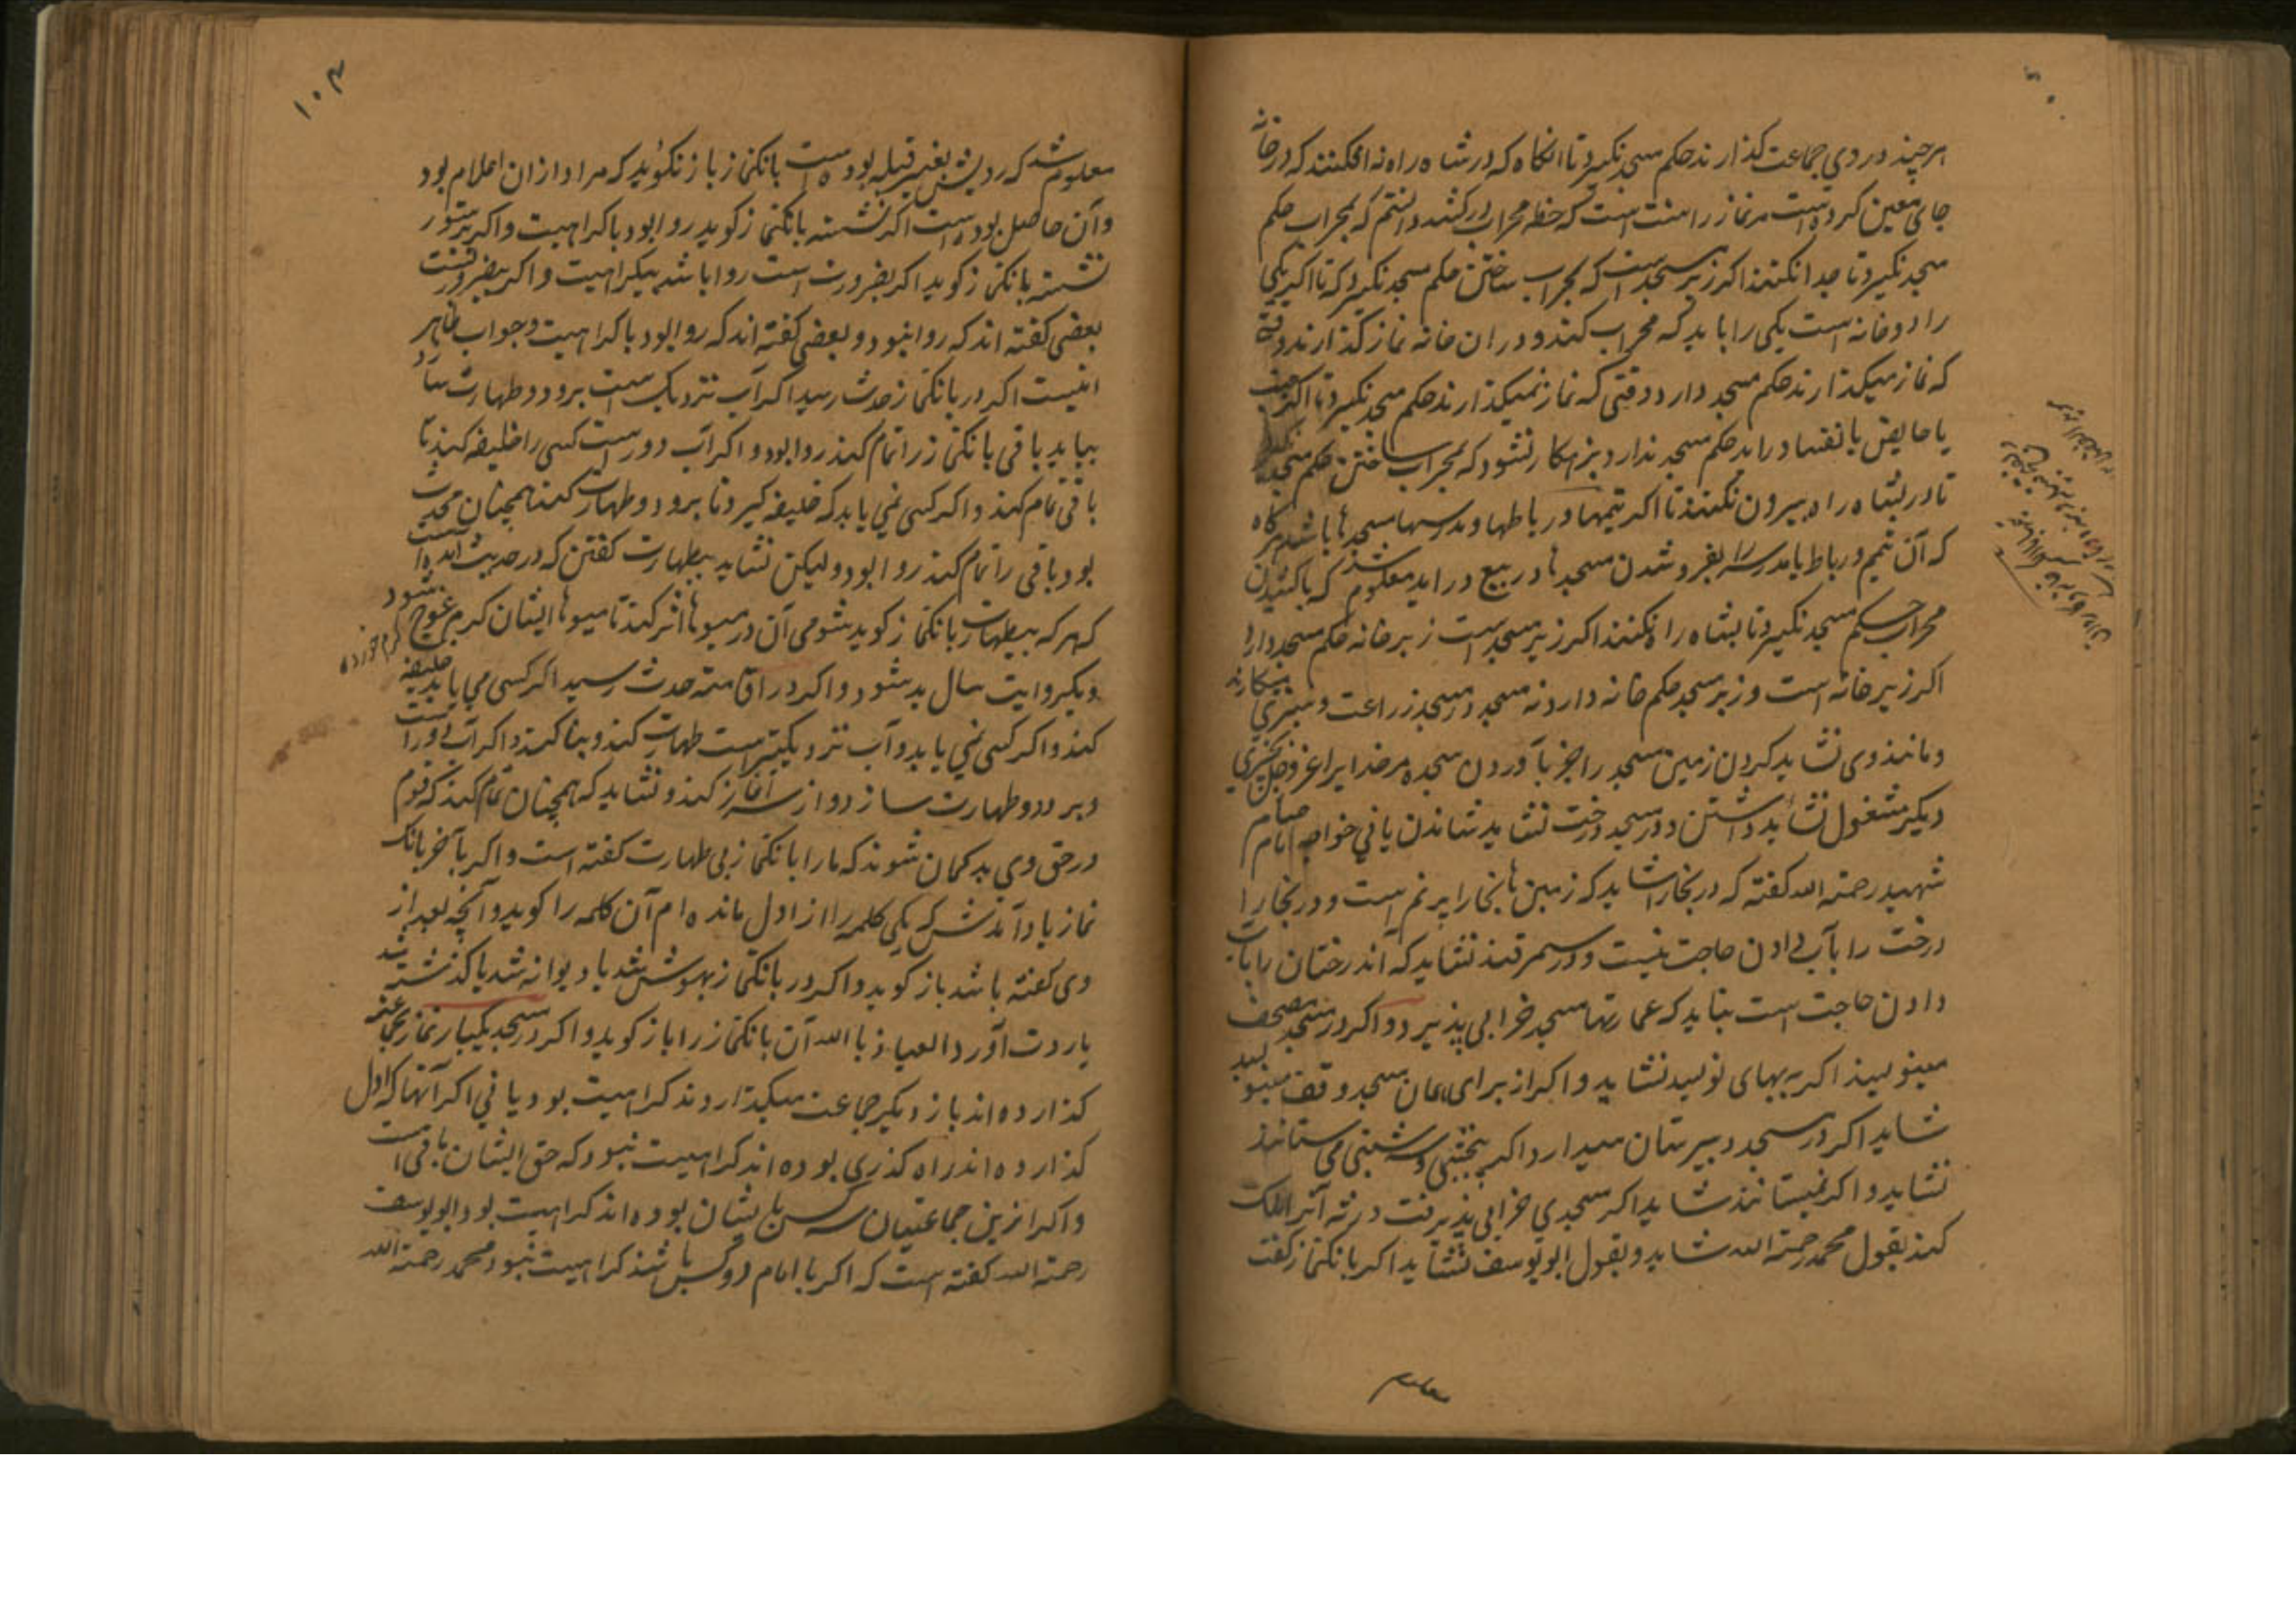 هرچند در وی جماعت گذارند حکم مسجد نگیرد تا آنگاه که در شاه راه نه افکنند که در خانه
جای معین کرده است مر نماز را سنت است که خط محراب درکشد دانستم که بمحراب حکم
مسجد نگیرد تا جدا نکنند اگر زیر مسجد است که بمحراب ساختن حکم مسجد نگیرد که تا اگر یکی
را دو خانه است یکی را باید که محراب کند و در آن خانه نماز گذارند وقتی
که نماز میگذارند حکم مسجد دارد وقتی که نماز نمیگذارند حکم مسجد نگیرد تا اگر جنب
یا حایض یا نفسا دراید حکم مسجد ندارد بزهکار نشود که بمحراب ساختن حکم مسجد نگیرد
تا در بشاه راه بیرون نکنند تا اگر تیمها و رباطها و مدرسها مسجدها باشد هرگاه
که آن تیم و رباط یا مدرسه را بفروشند آن مسجدها در بیع دراید معلوم شد که باکشیدن
محراب حکم مسجد نگیرد تا بشاه راه نکنند اگر زیر مسجد است زبر خانه حکم مسجد دارد
اگر زیر خانه است و زبر مسجد حکم خانه دارد نه مسجد و در مسجد زراعت و سبزی میکارند
و مانند وی نشاید کردن زمین مسجد را جز باوردن سجده مر خدایرا عز و جل بچیزی
دیگر مشغول نشاید داشتن و در مسجد درخت نشاید نشاندن یا نی خواجه امام حسام
شهید رحمة الله گفته که در بخارا شاید که زمین بخارا پر نم است و در بخارا
درخت را بآب دادن حاجت نیست و در سمرقند نشاید که اند درختان را بآب
دادن حاجت است بباید که عمارتها مسجد خرابی پذیرد و اگر در مسجد مصحف
مینویسند اگر به بهای نویسد نشاید و اگر از برای همان مسجد وقف مینویسد
شاید اگر در مسجد دبیرستان میدارد اگر پنجشنبی و شنبی می ستانند
نشاید و اگر نمیستانند شاید اگر مسجدی خرابی پذیرفت ورثه آنرا ملک
کند بقول محمد رحمة الله شاید و بقول ابو یوسف نشاید اگر بانگنماز گفت
معلوم
۱۰۴
معلوم شد که رویش بغیر قبله بوده است بانگنماز باز نگوید که مراد از آن اعلام بود
و آن حاصل بوده است اگر نشسته بانگنماز گوید روا بود با کراهیت و اگر بر ستور
نشسته بانگنماز گوید اگر بضرورت است روا باشد بیکراهیت و اگر بیضرورتست
بعضی گفته اند که روا نبود و بعضی گفته اند که روا بود با کراهیت و جواب ظاهر
اینست اگر در بانگنماز حدث رسید اگر آب نزدیک است برود و طهارت سازد
بیاید باقی بانگنماز را تمام کند روا بود و اگر آب دور است کسی را خلیفه کند تا
باقی تمام کند و اگر کسی نمی یابد که خلیفه گیرد تا برود و طهارت کند همچنان محدث
بود باقی را تمام کند روا بود ولیکن نشاید بیطهارت گفتن که در حدیث آمده است
که هر که بیطهارت بانگنماز گوید شومی آن در میوها اثر کند تا میوها ایشان کرم عوج شود
کرم خورده
و بیکروایت سال بد شود و اگر در اقامت حدث رسید اگر کسی می یابد خلیفه
کند و اگر کسی نمی یابد و آب نزدیکتر است طهارت کند و بنا کند و اگر آب دور است
و برود و طهارت سازد و از سر آغاز کند و نشاید که همچنان تمام کند که قوم
در حق وی بد گمان شوند که ما را بانگنماز بی طهارت گفته است و اگر بآخر بانگ
نماز یاد آمدش که یکی کلمه را از اول مانده ام آن کلمه را گوید و آنچه بعد از
وی گفته باشد باز گوید و اگر در بانگنماز بیهوش شد یا دیوانه شد یا گذشته شد
یا ردت آورد العیاذ بالله آن بانگنماز را باز گوید و اگر در مسجد یکبار نماز بجماعت
گذارده اند باز دیگر جماعت میگذارند کراهیت بود یا نی اگر آنها که اول
گذارده اند راه گذری بوده اند کراهیت نبود که حق ایشان باقی است
و اگر ازین جماعتیان سه کس با ایشان بوده اند کراهیت بود ابو یوسف
رحمة الله گفته است که اگر با امام دو کس باشند کراهیت نبود محمد رحمة الله